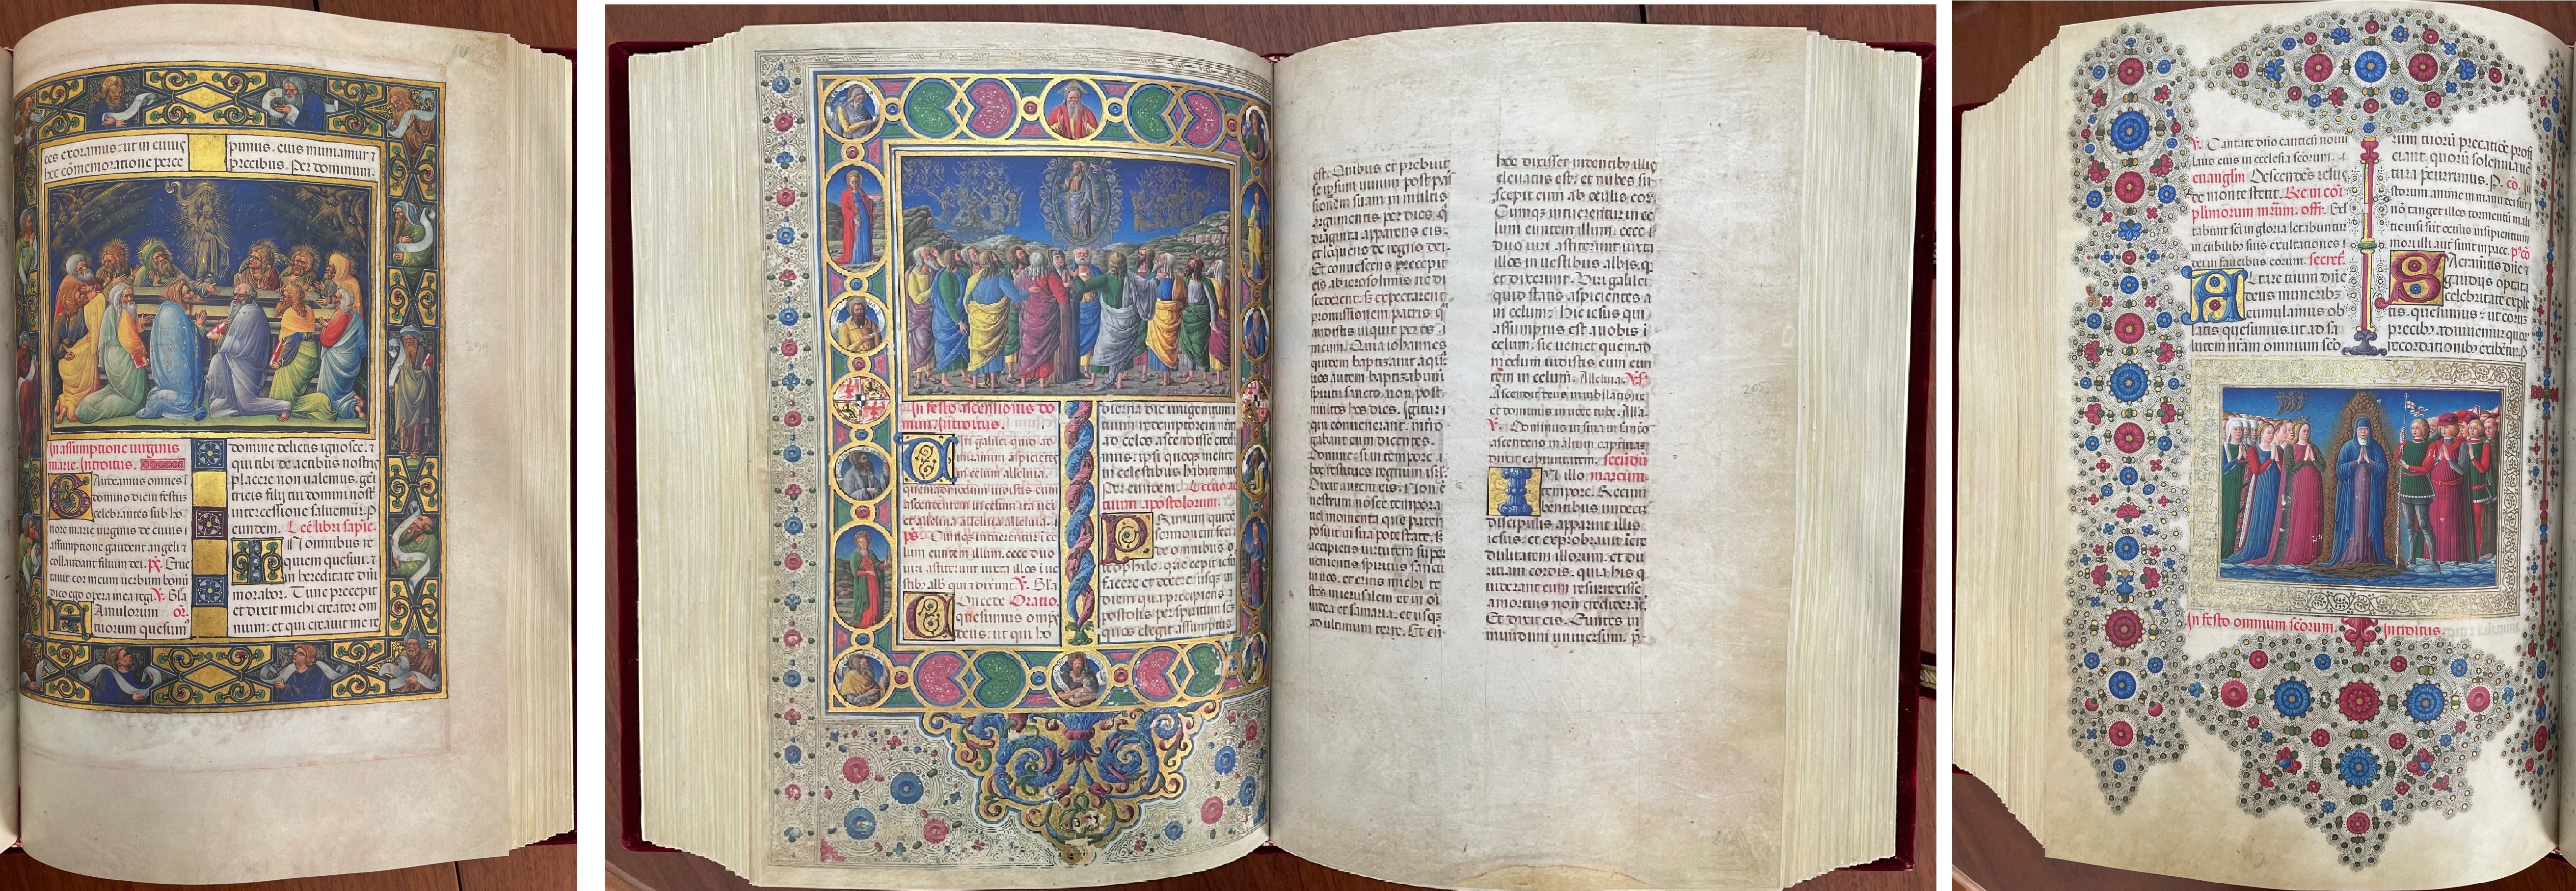 ces exoramus: ut in cuius
hec cōmemoratione perce
pimus. eius muniamur ⁊
precibus. Per dominum.
In assumptione uirginis
marie. Introitus.
Gaudeamus omnes ī
domino diem festum
celebrantes sub ho
nore marie uirginis de cuius
assumptione gaudent angeli ⁊
collaudant filium dei. ps̄. Eruc
tauit cor meum uerbum bonū
dico ego opera mea regi. V. Gla
Famulorum or̄.
tuorum quesum̄
domine delictis ignosce. ⁊
qui tibi de actibus nostris
placere non ualemus. geni
tricis filij tui domini nost̄
intercessione saluemur. P
eundem. Lec̄ libri sapie.
IN omnibus re
quiem quesiui. ⁊
in hereditate dn̄i
morabor. Tunc precepit
et dixit michi creator om
nium: et qui creauit me re
In festo ascensionis do
mini. Introitus.
Uiri galilei quid ad
miramini aspicientes
in celum alleluia.
quemadmodum uidistis eum
ascendentem in celum ita ueniet
et alleluia alleluia alleluia.
ps̄. Cumque intuerentur in ce
lum euntem illum. ecce duo
uiri astiterunt iuxta illos ī ues
tib̄ albis qui ⁊ dixerunt. V. Gla
Concede Oratio.
quesumus omps̄
deus: ut qui ho
dierna die unigenitum
tuum redemptorem nrm̄
ad celos ascendisse credi
mus: ipsi quoque mente
in celestibus habitemus
Per eundem. Lectio ac
tuum apostolorum.
PRimum quidē
sermonem feci
de omnibus o
theophile. que cepit iesus
facere et docere usque in
diem qua precipiens a
postolis per spiritum scm̄
quos elegit assumptus
est. Quibus et prebuit
se ipsum uiuum post pas
sionem suam in multis
argumentis per dies q̄
draginta apparens eis.
et loquens de regno dei.
Et conuescens precepit
eis ab ierosolimis ne di
scederent. s; expectarent
promissionem patris quā
audistis inquit per os
meum. Quia iohannes
quidem baptizauit aqua.
uos autem baptizabimi
spiritu sancto. non post
multos hos dies. Igitur
qui conuenerant. interro
gabant eum dicentes.
Domine: si in tempore
hoc restitues regnum isr̄l.
Dixit autem eis. Non ē
uestrum nosce tempora
uel momenta que pater
posuit in sua potestate. s;
accipietis uirtutem super
uenientis spiritus sancti
in uos. et eritis michi te
stes in ierusalem et in oī
iudea et samaria. et usque
ad ultimum terre. Et cū
hec dixisset uidentibus illis
eleuatus est. et nubes su
scepit eum ab oculis eor̄
Cumque intuerentur in ce
lum euntem illum: ecce
duo uiri astiterunt iuxta
illos in uestibus albis. q̄
et dixerunt. Viri galilei
quid statis aspicientes a
in celum: Hic iesus qui
assumptus est a uobis ī
celum. sic ueniet quemad
modum uidistis eum eun
tem in celum. Alleluia. V.
Ascendit deus in iubilatione
et dominus in uoce tube. Alla
V. Dominus in sina in sancto
ascendens in altum captiuam
duxit captiuitatem. secundū
IN illo marcum
tempore. Recum
bentibus undecim
discipulis apparuit illis
iesus. et exprobrauit incre
dulitatem illorum: et du
ritiam cordis. quia his qui
uiderant eum resurrexisse
a mortuis non crediderāt.
Et dixit eis. Euntes in
mundum uniuersum. p̄
V. Cantate dn̄o canticū nouū
laus eius in ecclesia scōrum.
euangliū Descendēs iesus
de monte stetit. Req̄ in cōi
plurimorum mrm̄. off. Exl
tabunt scī in gloria letabuntur
in cubilibus suis exultationes
dei in faucibus eorum. secret̄
Altare tuum dn̄e
deus muneribz
cumulamus ob
latis quesumus. ut ad sa
lutem nrām omnium scō
rum tuorū precatiōe profi
ciant. quorū solemnia uē
tura precurrimus. P. cō. Iu
storum anime in manu dei sūt ⁊
nō tanget illos tormentū mali
tie uisi sūt oculis insipientium
mori illi aut̄ sunt in pace. p̄ cō
Sacramtīs dn̄e ⁊
gaudiis optata
celebritate exple
tis. quesumus: ut eorum
precibz adiuuemur quor̄
recordationibz exibetur. P
In festo omnium scōrum. Introitus.